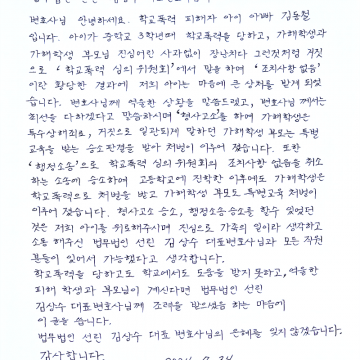 변호사님 안녕하세요. 학교폭력 피해자 아이 아빠 김동철
입니다. 아이가 중학교 3학년때 학교폭력을 당하고, 가해학생과
가해학생 부모님 진심어린 사과없이 장난치다 그런것처럼 거짓
으로 '학교폭력 심의위원회'에서 말을 하며 '조치사항 없음'
이란 황당한 결과에 저희 아이는 마음에 큰 상처를 받게 되었
습니다. 변호사님께 억울한 상황을 말씀드렸고, 변호사님 께서는
최선을 다하겠다고 말씀하시며 '형사고소'를 하여 가해학생은
특수상해죄로, 거짓으로 일관되게 말하던 가해학생 부모는 특별
교육을 받는 승소판결을 받아 처벌이 이루어 졌습니다. 또한
'행정소송'으로 학교폭력 심의위원회의 조치사항 없음을 취소
하는 소송에 승소하여 고등학교에 진학한 이후에도 가해학생은
학교폭력으로 처벌을 받고 가해학생 부모도 특별교육 처벌이
이루어 졌습니다. 형사고소 승소, 행정소송승소를 할수 있었던
것은 저희 아이를 위로해주시며 진심으로 가족의 일이라 생각하고
소통 해주신 법무법인 선린 김상수 대표변호사님과 모든 직원
분들이 있어서 가능했다고 생각합니다.
학교폭력을 당하고도 학교에서도 도움을 받지 못하고, 억울한
피해 학생과 부모님이 계신다면 법무법인 선린
김상수 대표변호사님께 조력을 받으셨음 하는 마음에
이 글을 씁니다.
법무법인 선린 김상수 대표 변호사님의 은혜를 잊지 않겠습니다.
감사합니다.